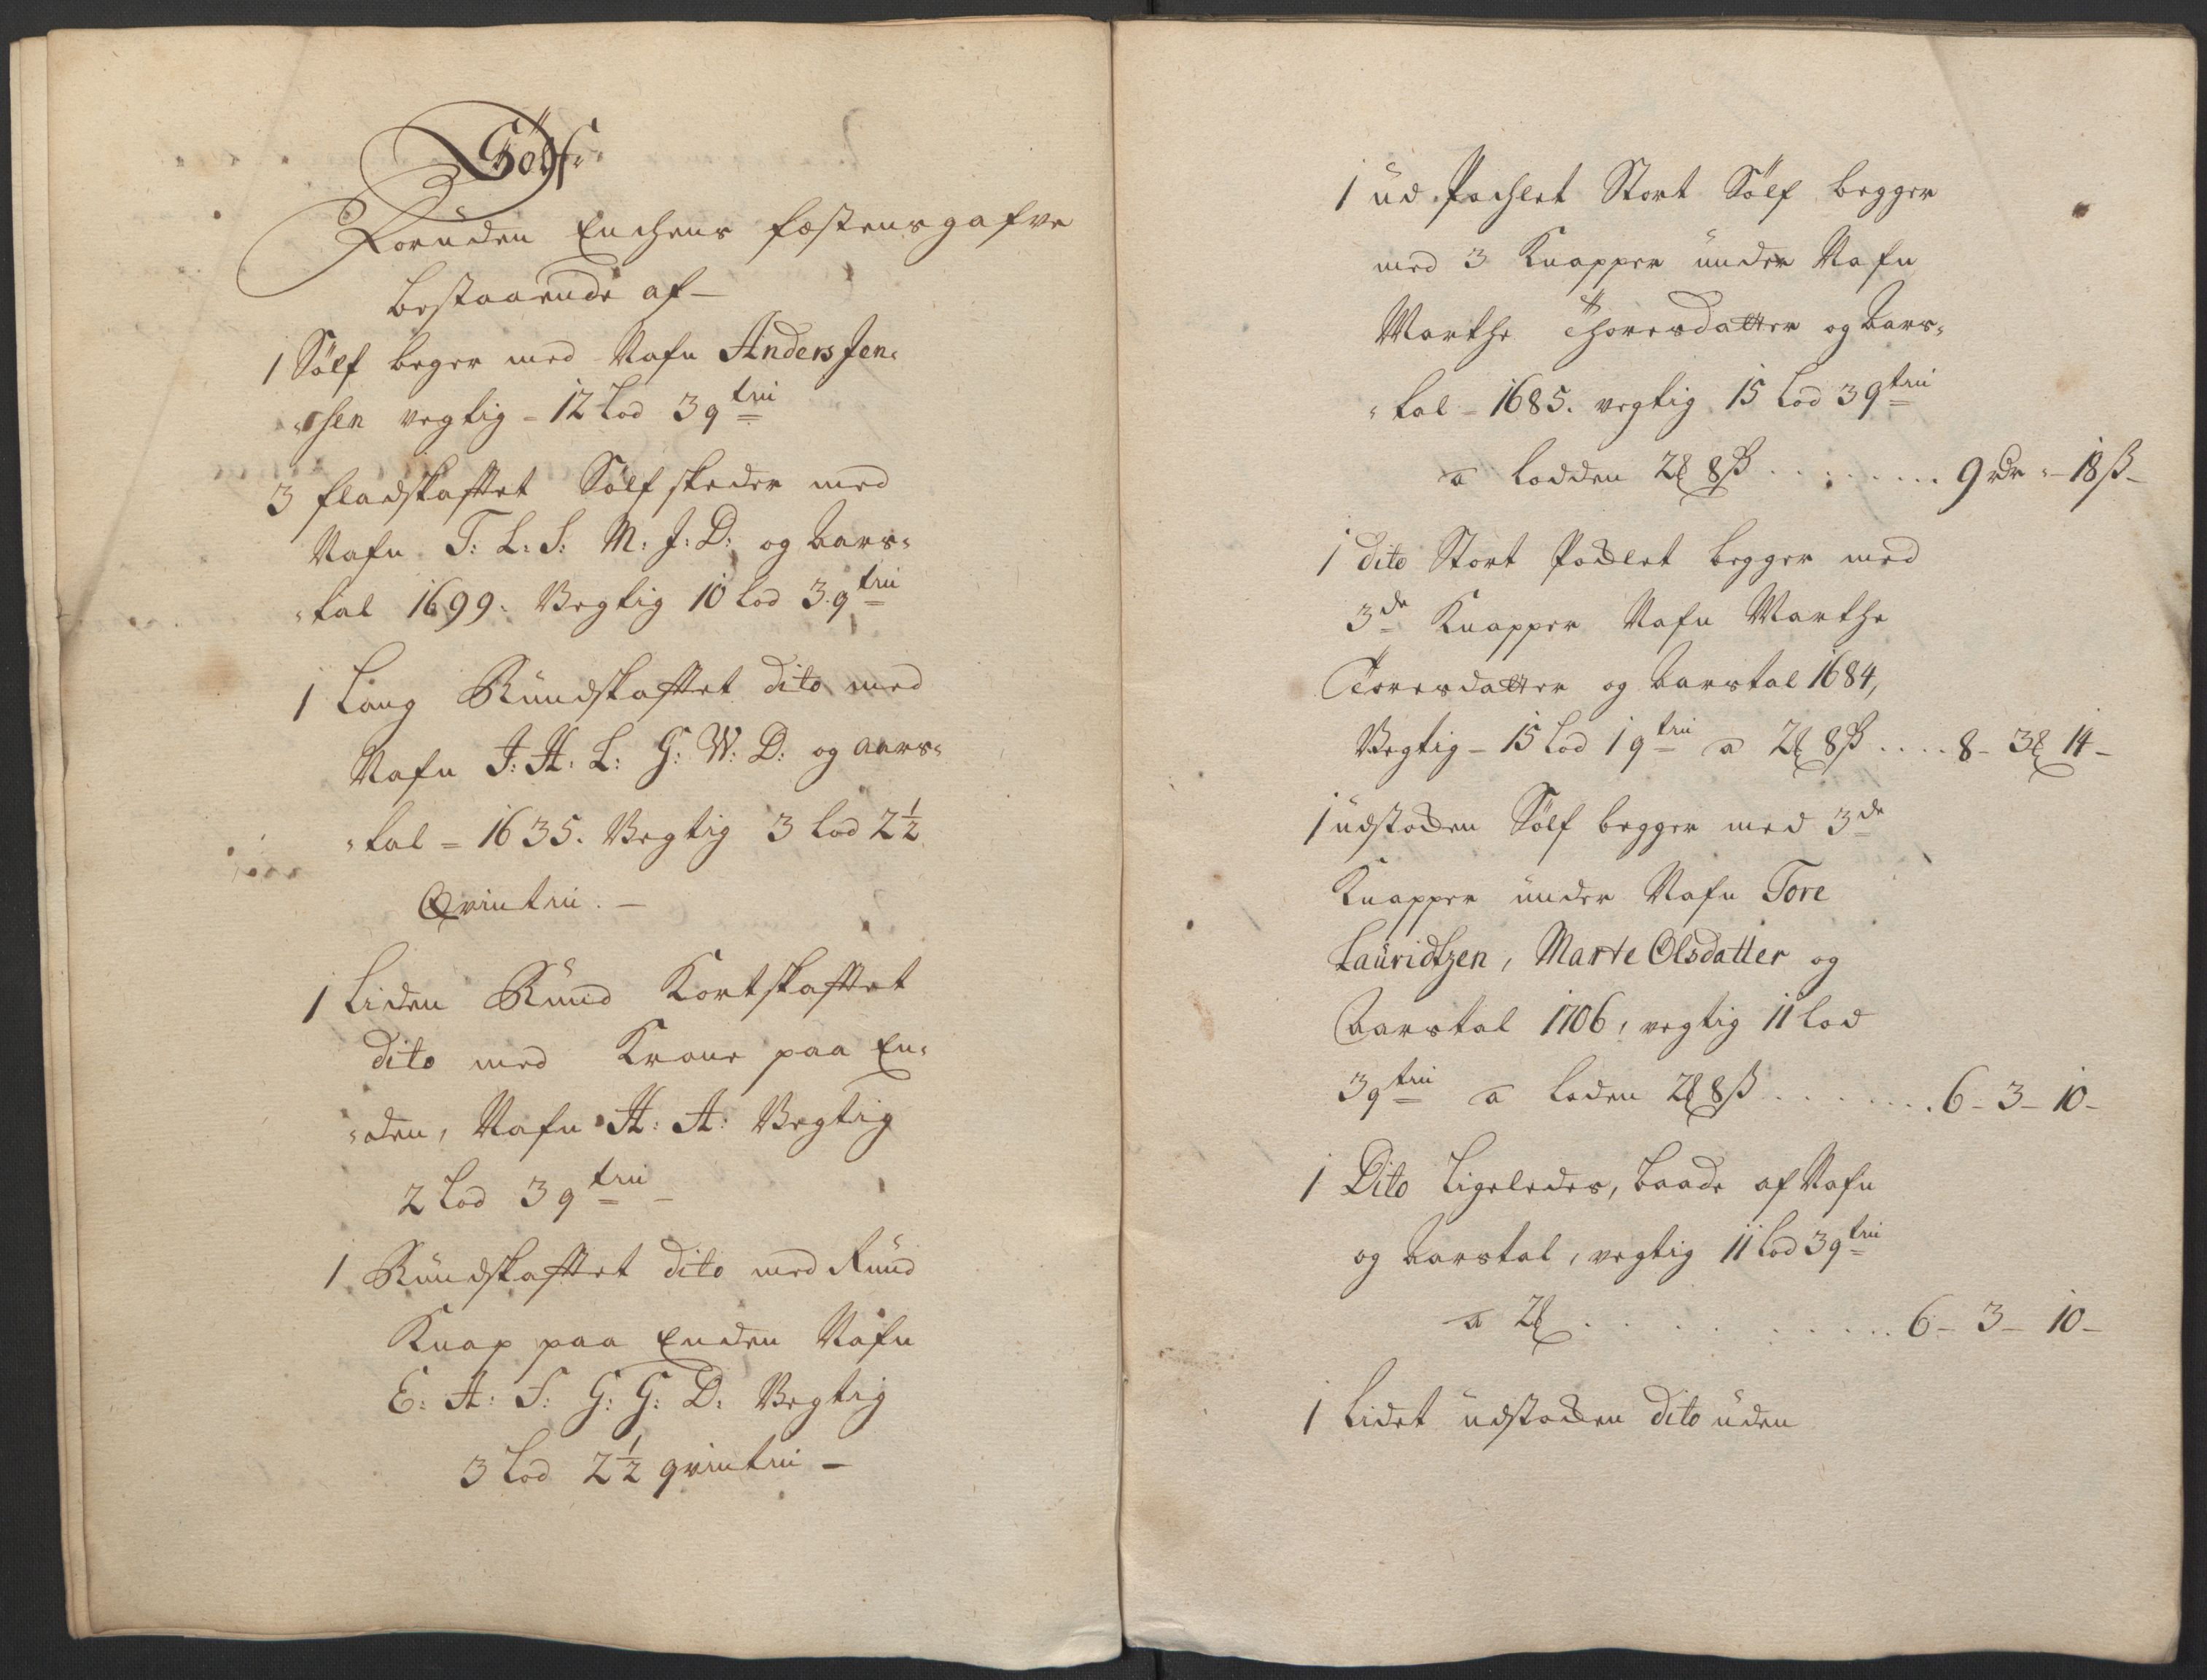 Sölf
Foruden Enchens fæstensgafve
bestaaende af –
1 Sölf beger med Nafn Anders Jen-
-sen vegtig – 12 Lod 3 qtin
3 fladskafftet Sölf skeder med
Nafn T: L: S: M: J: D: og Aars-
-tal 1699: Vegtig 10 Lod 3 qtin
1 Lang Rundskafftet dito med
Nafn J: H: L: G: W: D: og aars-
-tal = 1635. Vegtig 3 Lod 2½
Qvintin. –
1 Liden Rund Kortskafftet
dito med Krone paa En-
-den, Nafn H: A: Vegtig
2 Lod 3 qtin –
1 Rundskafftet dito med Rund
Knap paa Enden Nafn
E: A: S: G: G: D: Vegtig
3 Lod 2½ qvintin –
1 ud Pochlet Stort Sölf begger
med 3 Knapper under Nafn
Marthe Thoresdatter og Aars-
-tal – 1685. vegtig 15 Lod 3 qtin
a Lodden 2 8 ß . . . . . . . . 9 rdr - – 18 ß –
1 dito Stort Pocklet begger med
3de Knapper Nafn Marthe
Toresdatter og Aarstal 1684,
Vegtig – 15 Lod 1 qtin a 2 8 ß . . . . 8 – 3 14 –
1 udstocken Sölf begger med 3de
Knapper under Nafn Tore
Lauridtzen, Marte Olsdatter og
Aarstal 1706, vegtig 11 Lod
3 qtin a Loden 2 8 ß . . . . . . . 6 – 3 – 10 –
1 Dito Ligeledes, baade af Nafn
og Aarstal, vegtig 11 Lod 3 qtin
a 2 . . . . . . . . . 6 – 3 – 10 –
1 Lidet udstocken dito uden